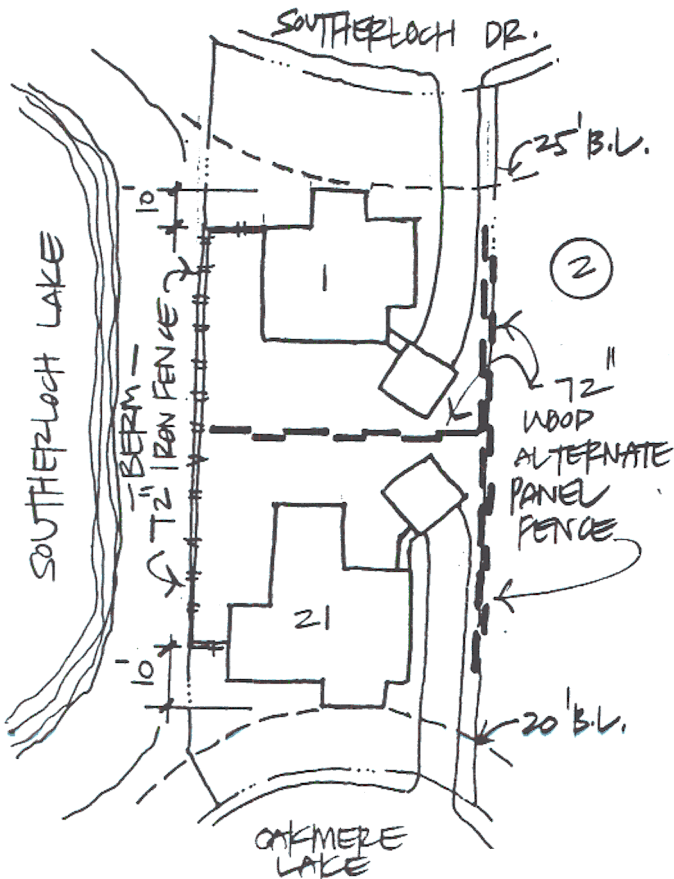 SOUTHERLOCH DR.
25' B.L.
10'
SOUTHERLOCH LAKE
- BERM -
72" IRON FENCE
1
2
72"
WOOD
ALTERNATE
PANEL
FENCE
21
10'
20' B.L.
OAKMERE
LAKE